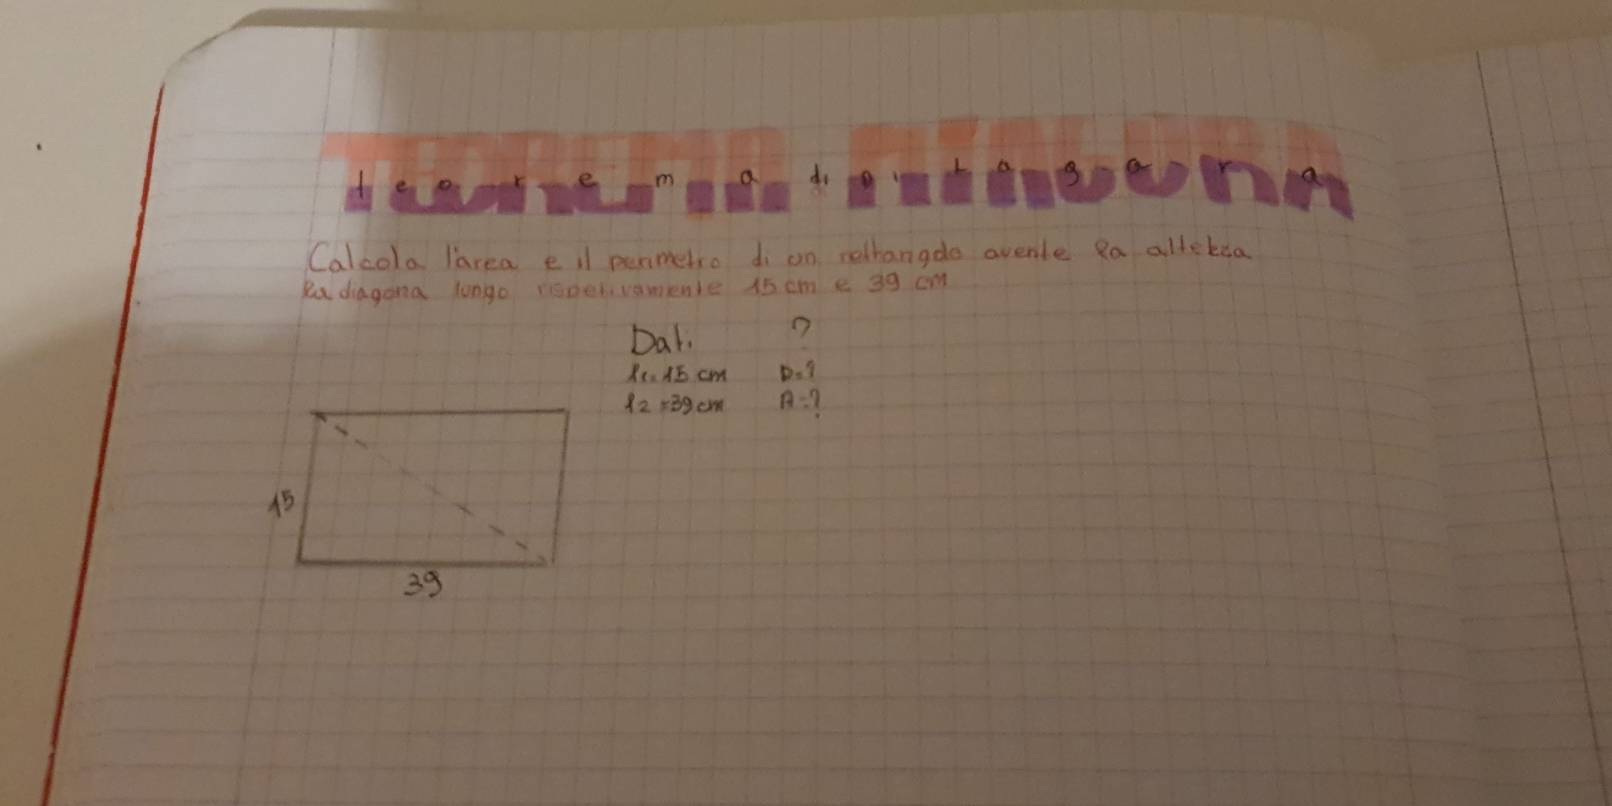 teorema di pitagora
Calcola l'area e il perimetro di un rettangolo avente la altezza
la diagona lungo rispetivamente 15 cm e 39 cm
Dati ?
l1= 15 cm P=?
l2=39cm A=?
15
39